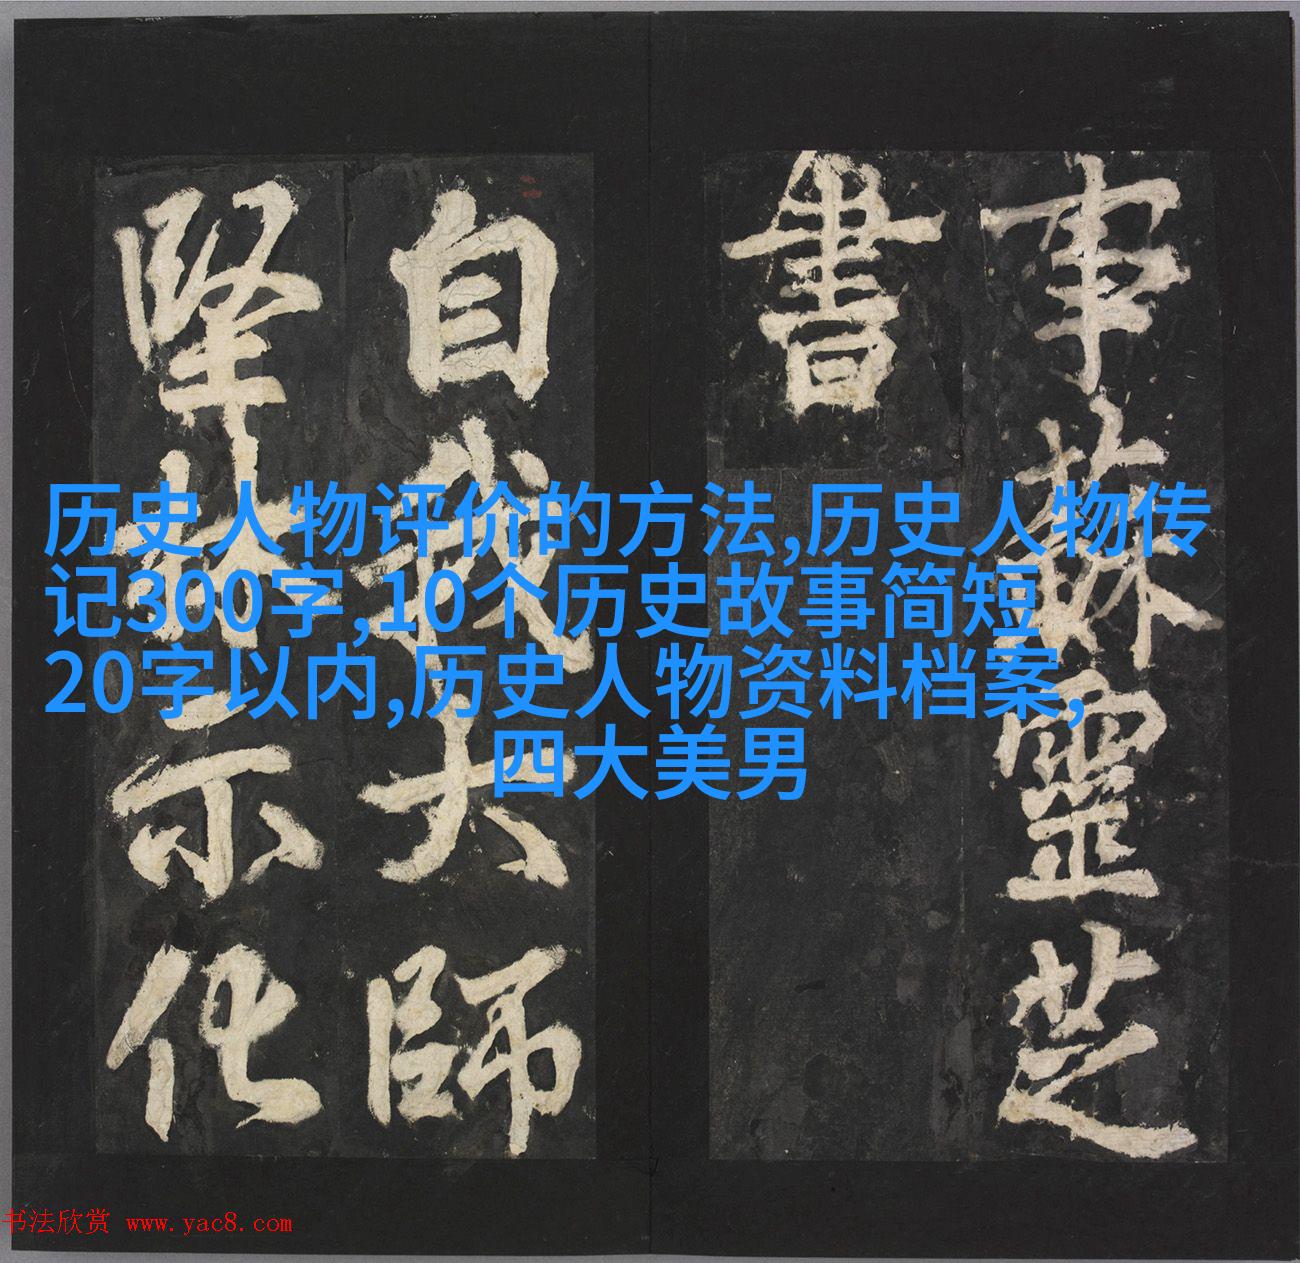 历史人物评价的方法,历史人物传
记300字,10个历史故事简短
20字以内,历史人物资料档案,
四大美男
事蘇靈芝
書
自我大師
堅林示化
书法欣赏 www.yac8.com